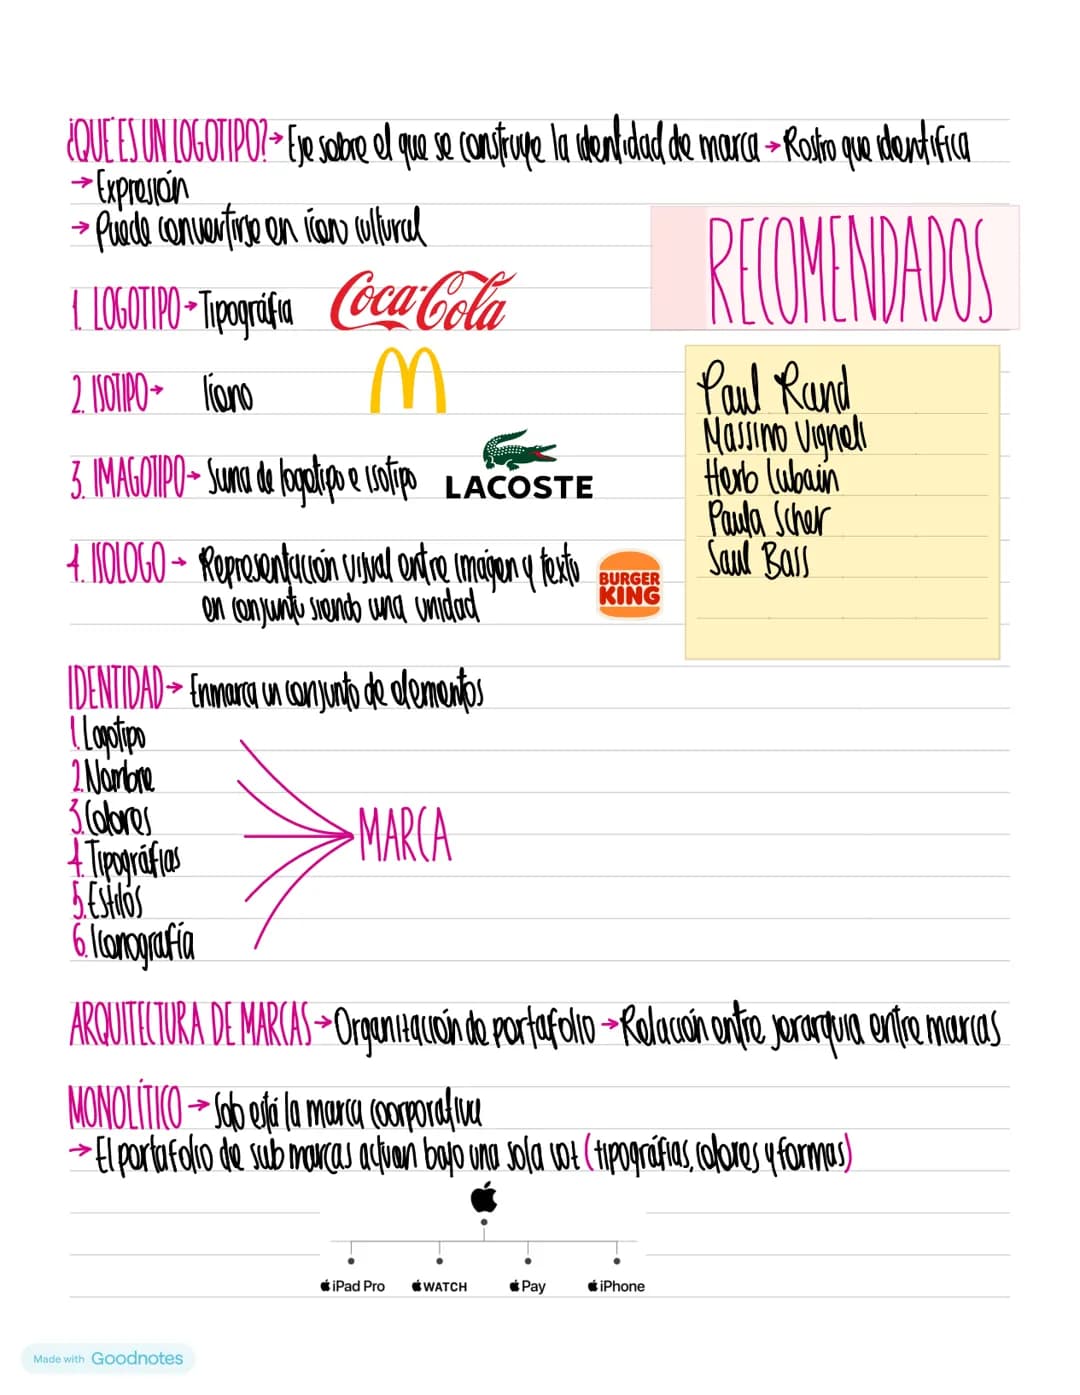 ¿QUÉ ES UN LOGOTIPO? → Eje sobre el que se construye la identidad de marca → Rostro que identifica
→ Expresión
→ Puede convertirse en ícono cultural
RECOMENDADOS
1. LOGOTIPO → Tipográfia Coca-Cola
2. ISOTIPO → Ícono
3. IMAGOTIPO → Suma de logotipo e isotipo LACOSTE
4. ISOLOGO → Representación visual entre imágen y texto
en conjunto siendo una unidad
BURGER
KING
Paul Rand
Massimo Vigneli
Herb Lubain
Paula Scher
Saul Bass
IDENTIDAD → Enmarca un conjunto de elementos
1. Logotipo
2. Nombre
3. Colores
4. Tipográfias
5. Estilos
6. Iconografía
MARCA
ARQUITECTURA DE MARCAS → Organización de portafolio → Relación entre jerarquia entre marcas
MONOLÍTICO → Solo está la marca coorporativa
→ El portafolio de sub marcas actuan bajo una sola voz (tipográfias, colores y formas)
iPad Pro WATCH Pay iPhone
Made with Goodnotes